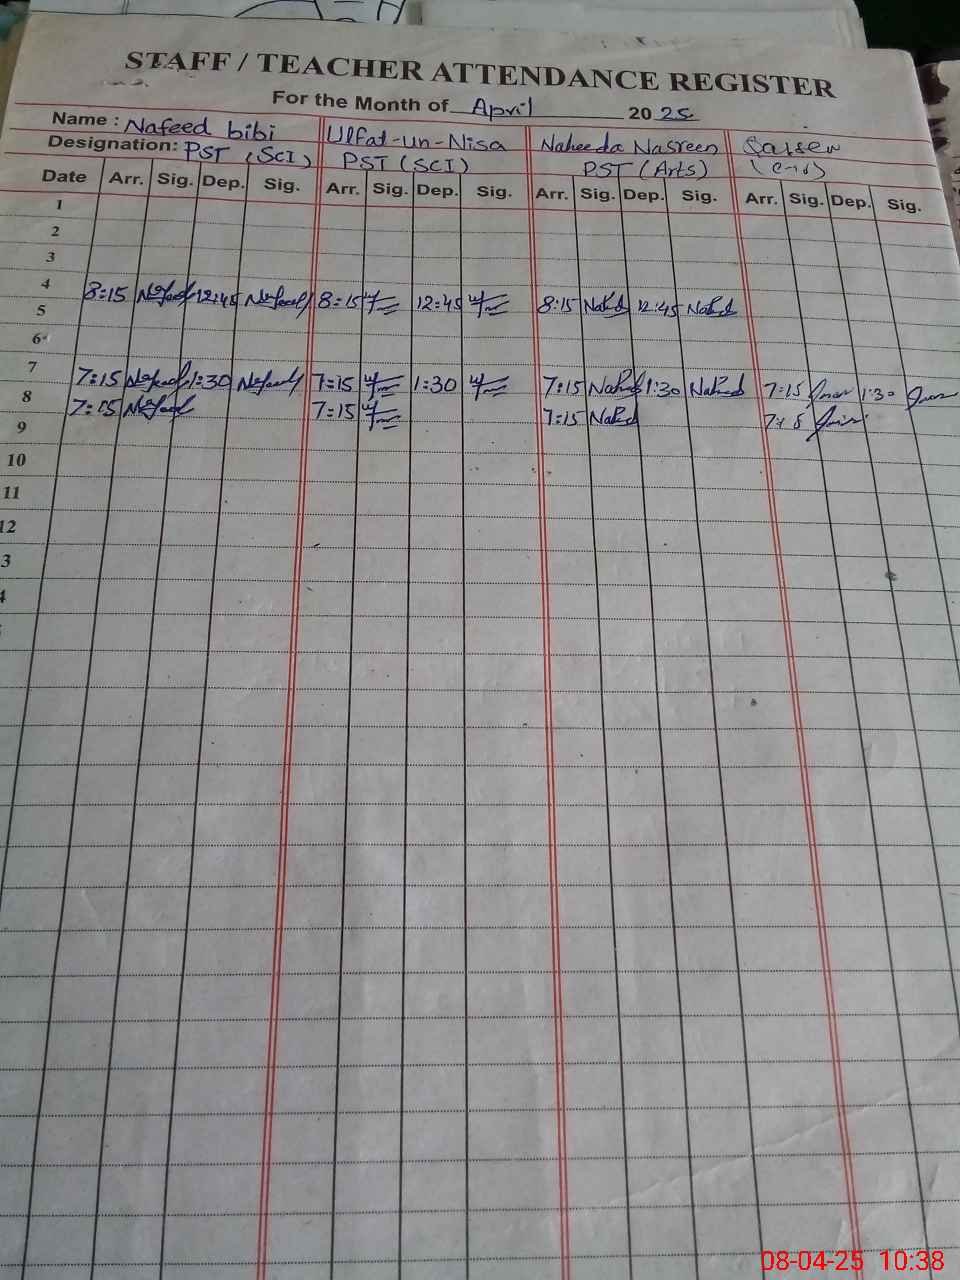 STAFF / TEACHER ATTENDANCE REGISTER
For the Month of April 2025
Name : Nafeed bibi Ulfat-un-Nisa Naheeda Nasreen
Designation: PST (SCI) PST (SCI) PST (Arts)
Date Arr. Sig. Dep. Sig. Arr. Sig. Dep. Sig. Arr. Sig. Dep. Sig. Arr. Sig. Dep. Sig.
1
2
3
4 8:15 Nafeed 12:45 Nafeed 8:15 12:45 8:15 Nahed 12:45 Nahed
5
6
7 7:15 Nafeed 1:30 Nafeed 7:15 1:30 7:15 Nahed 1:30 Nahed 7:15 1:30
8 7:15 Nafeed 7:15 7:15 Nahed 7:15
9
10
11
12
3
4
08-04-25 10:38